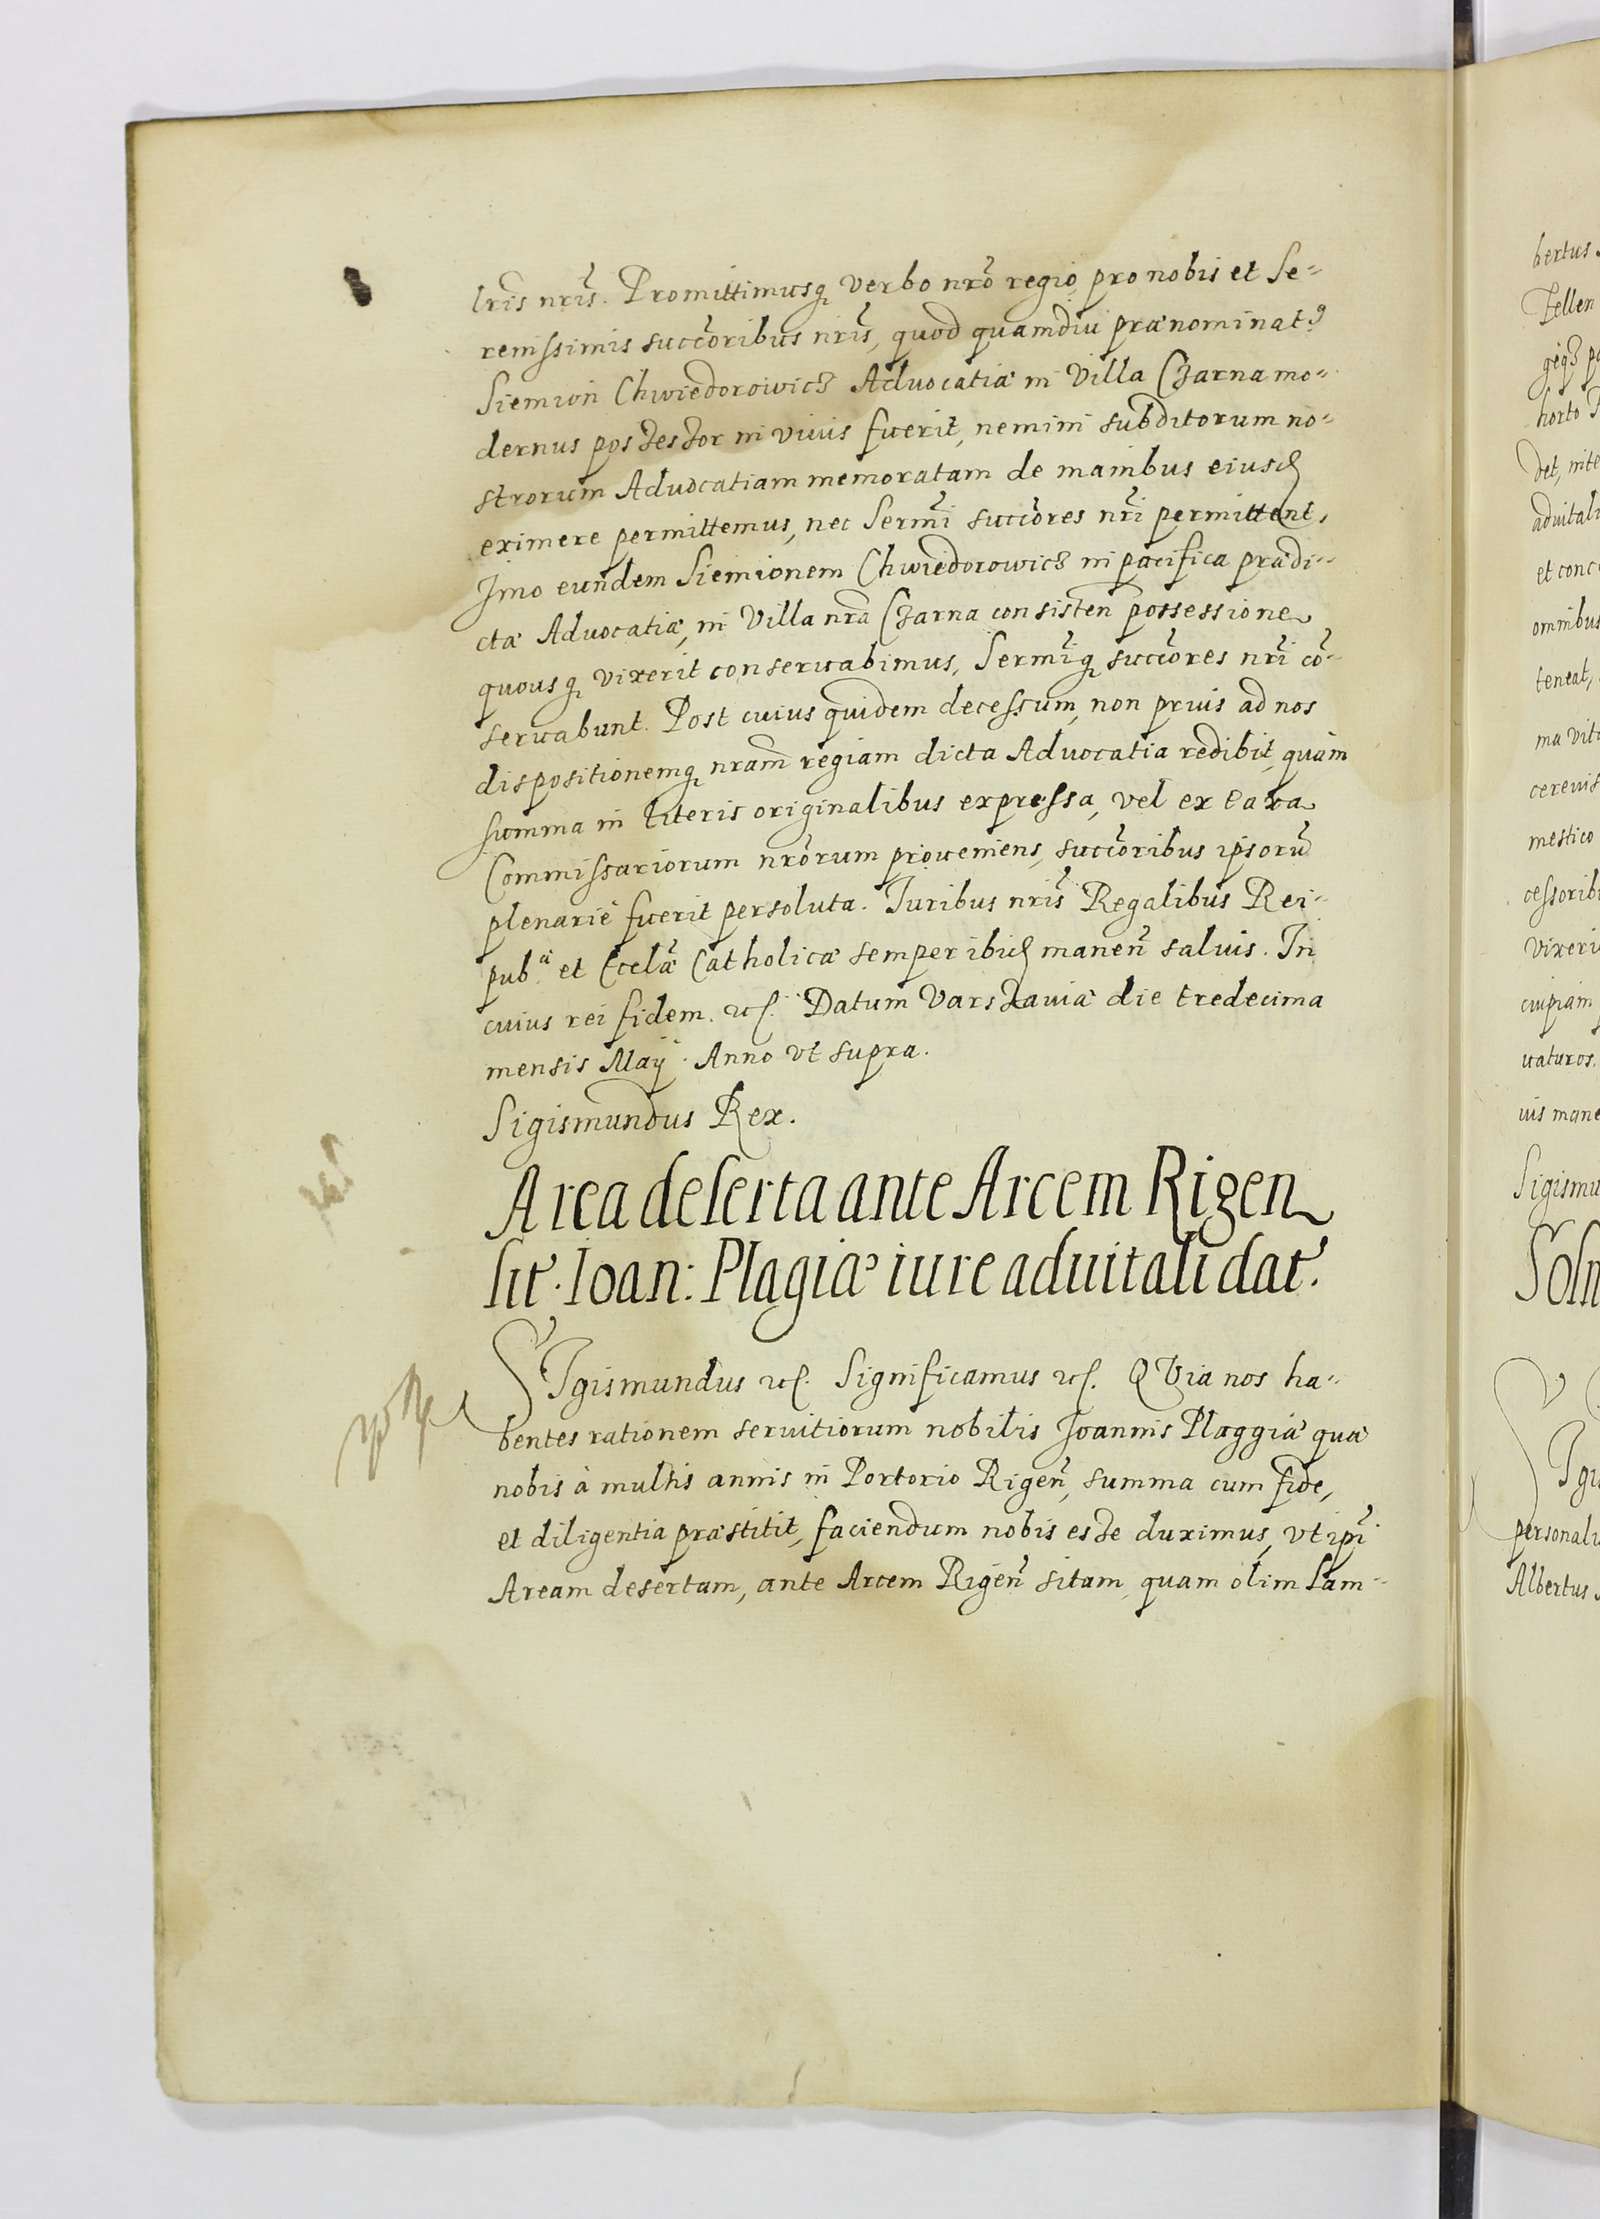 lris nris. Promittimusq verbo nro regio, pro nobis et Se-
renissimis succoribus nris, quod quamdiu prænominat9
Siemion Chwiedorowicz Advocatiæ in Villa Czarna mo-
dernus possessor in vivis fuerit, nemini subditorum no-
strorum Advocatiam memoratam de manibus eiusd
eximere permittemus, nec Sermi succores nri permittent,
Imo eundem Siemionem Chwiedorowicz in pacifica prædi-
ctæ Advocatiæ, in Villa nra Czarna consisten possessione
quousq vixerit conseruabimus, Sermiq succores nri co-
seruabunt. Post cuius quidem decessum, non prius ad nos
dispositionemq nram regiam dicta Advocatia redibit, quàm
summa in literis originalibus expressa, vel ex taxa
Commissariorum nrorum proueniens, succoribus ipsoru
plenariè fuerit persoluta. Iuribus nris Regalibus Rei-
pub. æ et Ecclæ Catholicæ semper ibid manen saluis. In
cuius rei fidem. etc. Datum Varszauiæ die tredecima
mensis Maÿ. Anno vt supra.
Sigismundus Rex.
Area deserta ante Arcem Rigen
sit. Ioan: Plagiæ iure aduitali dat.
SIgismundus etc. Significamus etc. QVia nos ha-
bentes rationem seruitiorum nobilis Joannis Plaggiæ quæ
nobis à multis annis in Portorio Rigen, summa cum fide,
et diligentia præstitit, faciendum nobis esse duximus, vt ipi
Aream desertam, ante Arcem Rigen sitam, quam olim Lam-
bertus
Zellen
horto
det, inte
aduitali
et conc
omnibus
teneat,
ma vit
cerevis
mestico
cessorib
vixeri
cuipiam
uaturos.
uis mane
Sigismu
Soln
Igi
personali
Albertus